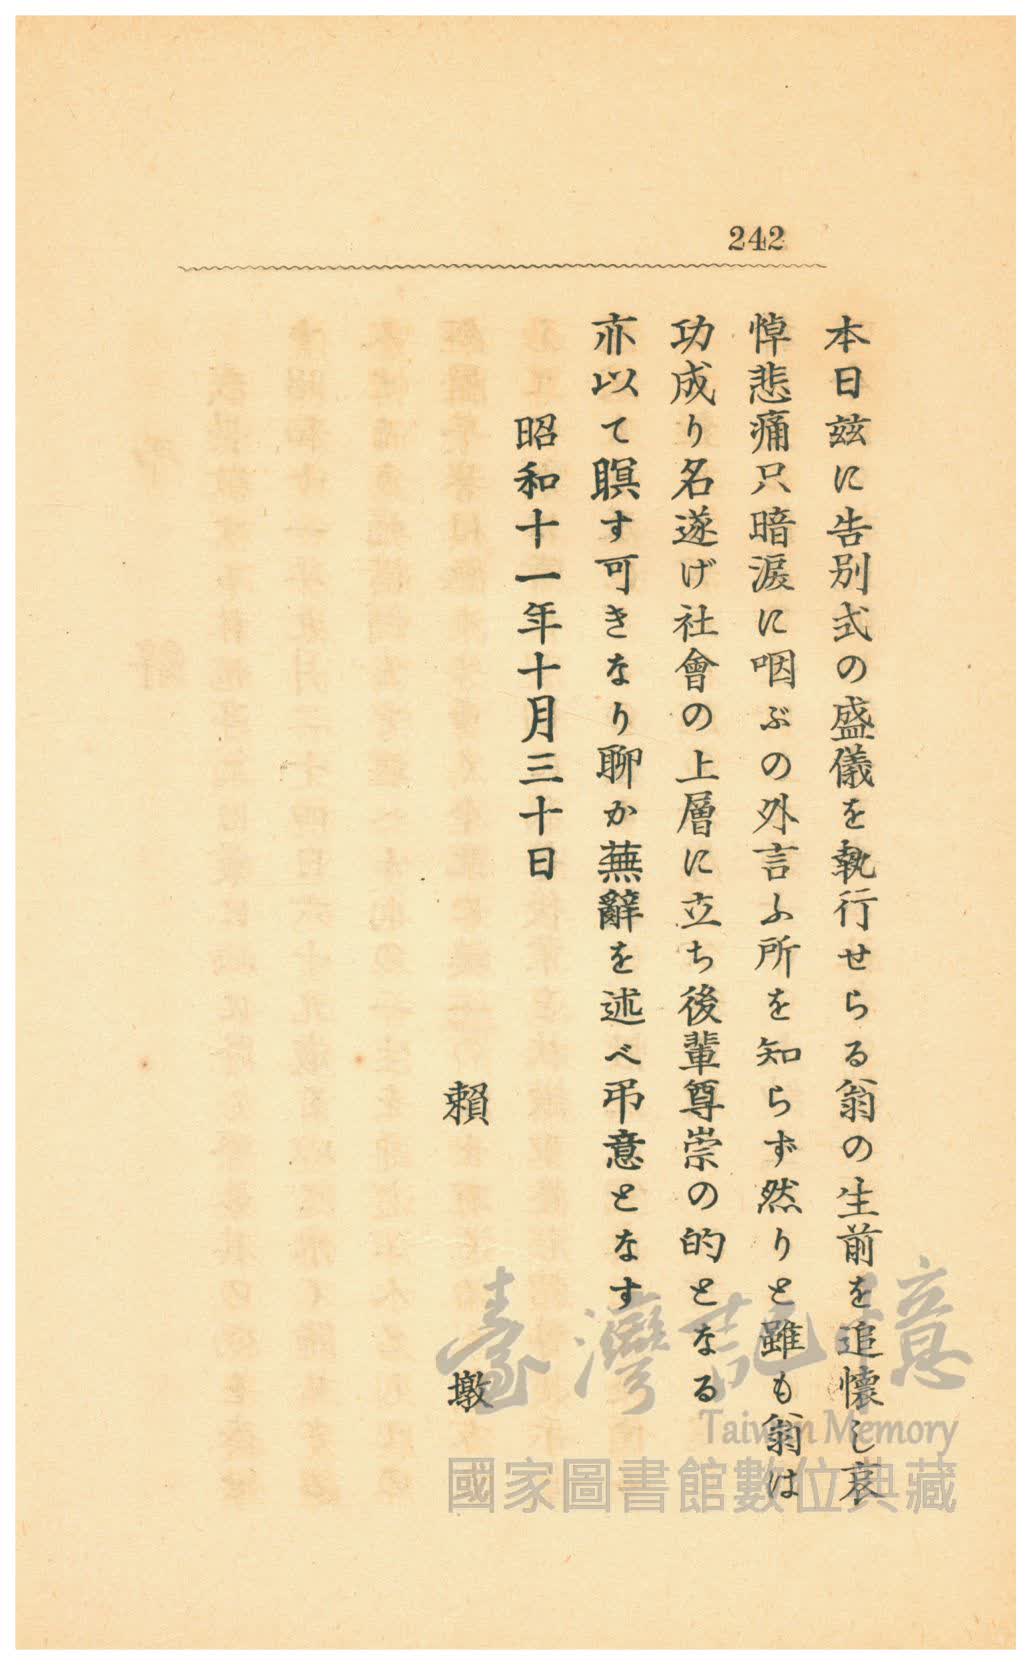 242
本日茲に告別式の盛儀を執行せらる翁の生前を追懷し哀
悼悲痛只暗淚に咽ぶの外言ふ所を知らず然りと雖も翁は
功成り名遂げ社會の上層に立ち後輩尊崇の的となる
亦以て瞑す可きなり聊か蕪辭を述べ弔意となす
昭和十一年十月三十日
賴墩
臺灣記憶
Taiwan Memory
國家圖書館數位典藏